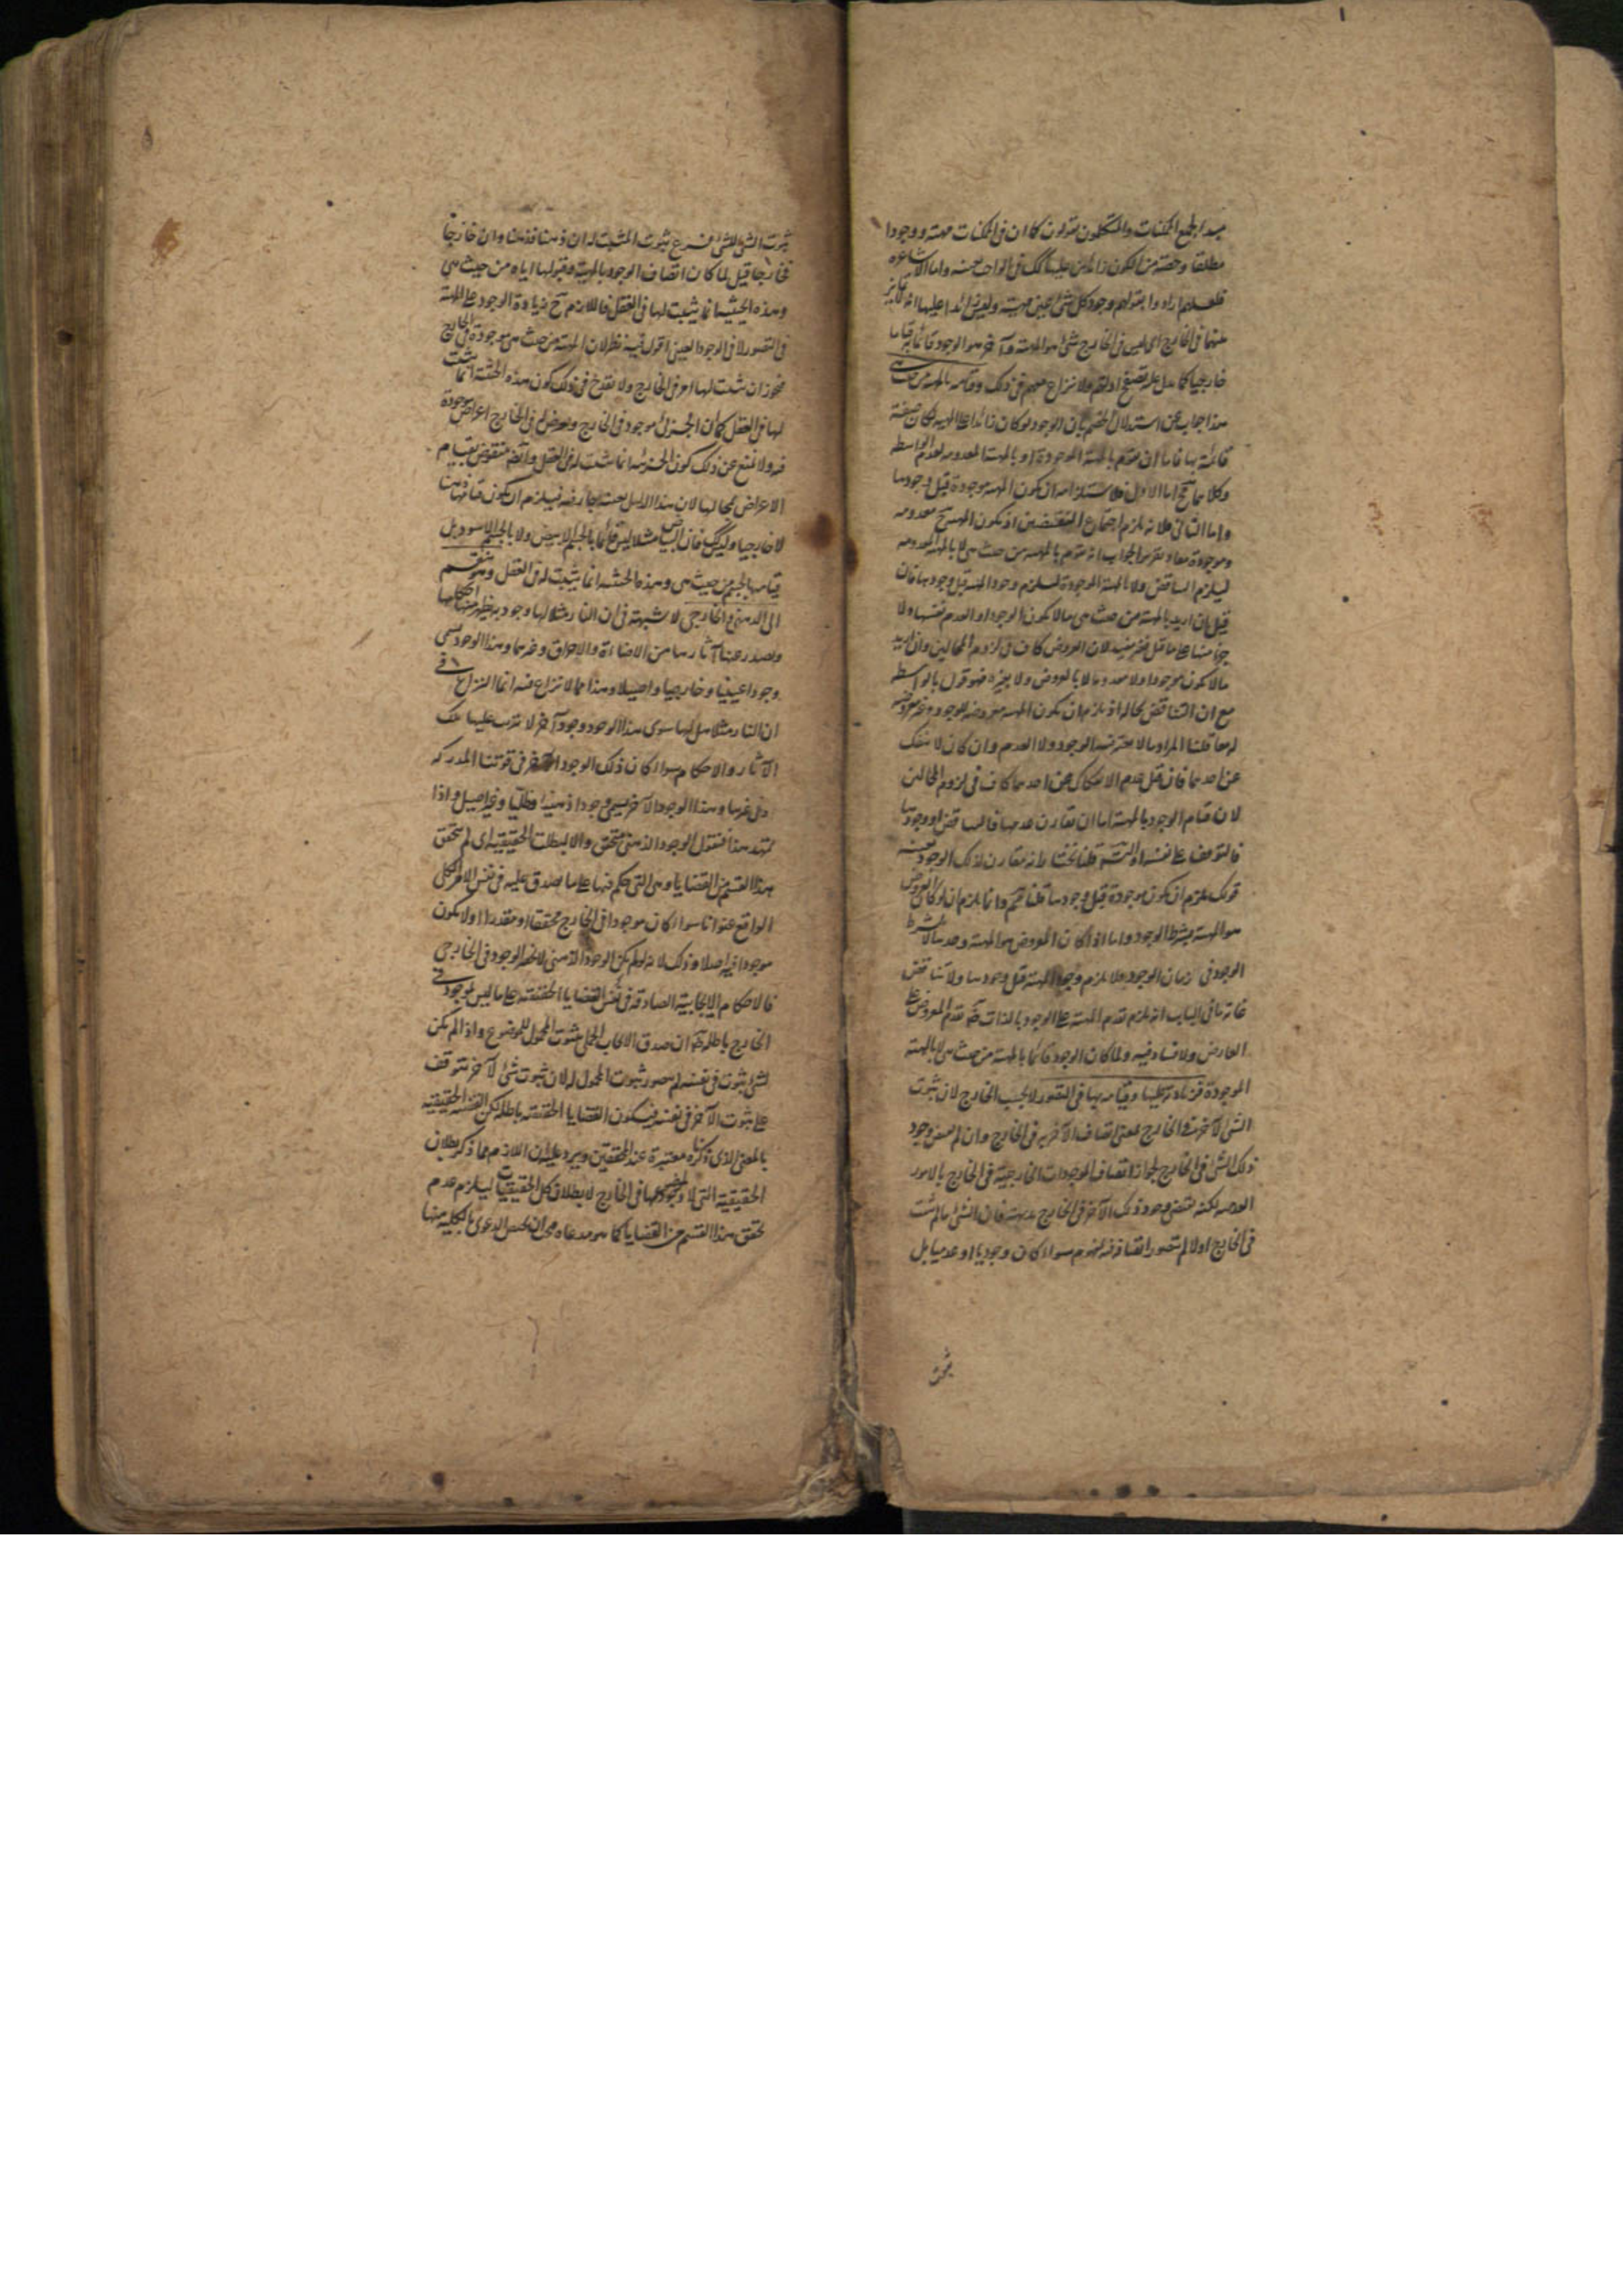 مبدا لجميع الممكنات والمتكلمون يقولون كما ان فى الممكنات مهية ووجودا
مطلقا وحصة من الكون زائدين عليها كك فى الواجب بعينه واما الاشاعرة
فلعلهم ارادوا بقولهم وجود كل شئ عين مهيته وليس زائدا عليها انه لا تمايز
بينهما فى الخارج اى ليس فى الخارج شئ هو المهية وآخر هو الوجود قائما به قياما
خارجيا كما يدل عليه تصفح ادلتهم ولا نزاع معهم فى ذلك وقيامه بالمهية من حيث هى
هذا جواب عن استدلال الخصم بان الوجود لو كان زائدا على المهية لكان صفة
قائمة بها فاما ان يقوم بالمهية الموجودة او بالمهية المعدومة لعدم الواسطة
وكلاهما مح اما الاول فلاستلزامه ان يكون المهية موجودة قبل وجودها
واما الثانى فلانه يلزم اجتماع النقيضين اذ يكون المهية ح معدومة
وموجودة معا وتقرير الجواب انه يقوم بالمهية من حيث هى لا بالمهية المعدومة
ليلزم التناقض ولا بالمهية الموجودة ليلزم وجود المهية قبل وجودها فان
قيل ان اريد بالمهية من حيث هى ما لا يكون الوجود او العدم نفسها ولا
جزءا منها على ما قيل فغير مفيد لان العروض كاف فى لزوم المحالين وان اريد
ما لا يكون موجودا ولا معدوما لا بالعروض ولا بغيره فهو قول بالواسطة
مع ان التناقض بحاله اذ يلزم ان يكون المهية معروضة للوجود وغير معروضة
له معا قلنا المراد ما لا يعتبر فيه الوجود ولا العدم وان كان لا ينفك
عن احدهما فان قيل عدم الانفكاك عن احدهما كاف فى لزوم المحالين
لان قيام الوجود بالمهية اما ان يقارن عدمها فالتناقض او وجودها
فالتوقف على نفسه او التسلسل قلنا نختار انه مقارن لذلك الوجود بعينه
قولك يلزم ان يكون موجودة قبل وجودها قلنا مم وانما يلزم ان لو كان المعروض
هو المهية بشرط الوجود واما اذا كان المعروض هو المهية وحدها لا بشرط
الوجود فى زمان الوجود فلا يلزم وجود المهية قبل وجودها ولا تناقض
غاية ما فى الباب انه يلزم تقدم المهية على الوجود بالذات ضرورة تقدم المعروض على
العارض ولا فساد فيه ولما كان الوجود قائما بالمهية من حيث هى لا بالمهية
الموجودة فزيادته عليها وقيامه بها فى التصور لا بحسب الخارج لان ثبوت
الشئ لآخر فى الخارج بمعنى اتصاف الآخر به فى الخارج وان لم يقتض وجود
ذلك الشئ فى الخارج لجواز اتصاف الموجودات الخارجية فى الخارج بالامور
العدمية لكنه يقتضى وجود ذلك الآخر فى الخارج بديهة فان الشئ ما لم يثبت
فى الخارج اولا لم يتصور اتصافه فيه بمفهوم سواء كان وجوديا او عدميا بل
ثبوت
ثبوت الشئ للشئ فرع ثبوت المثبت له ان ذهنا فذهنا وان خارجا
فخارجا قيل لما كان اتصاف الوجود بالمهية وقبولها اياه من حيث هى
وهذه الحيثية انما يثبت لها فى العقل فاللازم ح زيادة الوجود على المهية
فى التصور لا فى الوجود العينى اقول فيه نظر لان المهية من حيث هى موجودة فى الخارج
فيجوز ان يثبت لها امر فى الخارج ولا يقدح فى ذلك كون هذه الحيثية انما يثبت
لها فى العقل كما ان الجزئى موجود فى الخارج ويعرض له فى الخارج اعراض موجودة
فيه ولا يمنع عن ذلك كون الجزئية انما يثبت له فى العقل وايضا منقوض بقيام
الاعراض بمحالها لان هذا الدليل بعينه جار فيه فيلزم ان يكون قيامها ذهنيا
لا خارجيا وليس كك فان البياض مثلا ليس قائما بالجسم الابيض ولا بالجسم الاسود بل
قيامه بالجسم من حيث هى وهذه الحيثية انما يثبت له فى العقل وهو ينقسم
الى الذهنى والخارجى لا شبهة فى ان النار مثلا لها وجود به يظهر منها احكامها
ويصدر عنها آثارها من الاضاءة والاحراق وغيرهما وهذا الوجود يسمى
وجودا عينيا وخارجيا واصيلا وهذا مما لا نزاع فيه انما النزاع فى
ان النار مثلا هل لها سوى هذا الوجود وجود آخر لا يترتب عليها تلك
الآثار والاحكام سواء كان ذلك الوجود الآخر فى قوتنا المدركة
وفى غيرها وهذا الوجود الآخر يسمى وجودا ذهنيا وظليا وغير اصيل واذا
تمهد هذا فنقول الوجود الذهنى متحقق والا لبطلت الحقيقية اى لم يتحقق
هذا القسم من القضايا وهى التى حكم فيها على ما يصدق عليه فى نفس الامر الكلى
الواقع عنوانا سواء كان موجودا فى الخارج محققا او مقدرا اولا يكون
موجودا فيه اصلا وذلك لانه لو لم يكن الوجود الذهنى لانحصر الوجود فى الخارجى
فالاحكام الايجابية الصادقة فى نفس القضايا الحقيقية على ما ليس بموجود فى
الخارج باطلة ضرورة ان صدق الايجاب الحملى بثبوت المحمول للموضوع واذا لم يكن
لشئ ثبوت فى نفسه لم يتصور ثبوت المحمول له لان ثبوت شئ لآخر يتوقف
على ثبوت الآخر فى نفسه فيكون القضايا الحقيقية باطلة لكن القضية الحقيقية
بالمعنى الذى ذكرناه معتبرة عند المحققين ويرد عليه ان اللازم مما ذكر بطلان
الحقيقية التى لا وجود لموضوعها فى الخارج لا بطلان كل الحقيقيات ليلزم عدم
تحقق هذا القسم من القضايا كما هو مدعاه مجرى ان يخصص الدعوى بالكلية منها